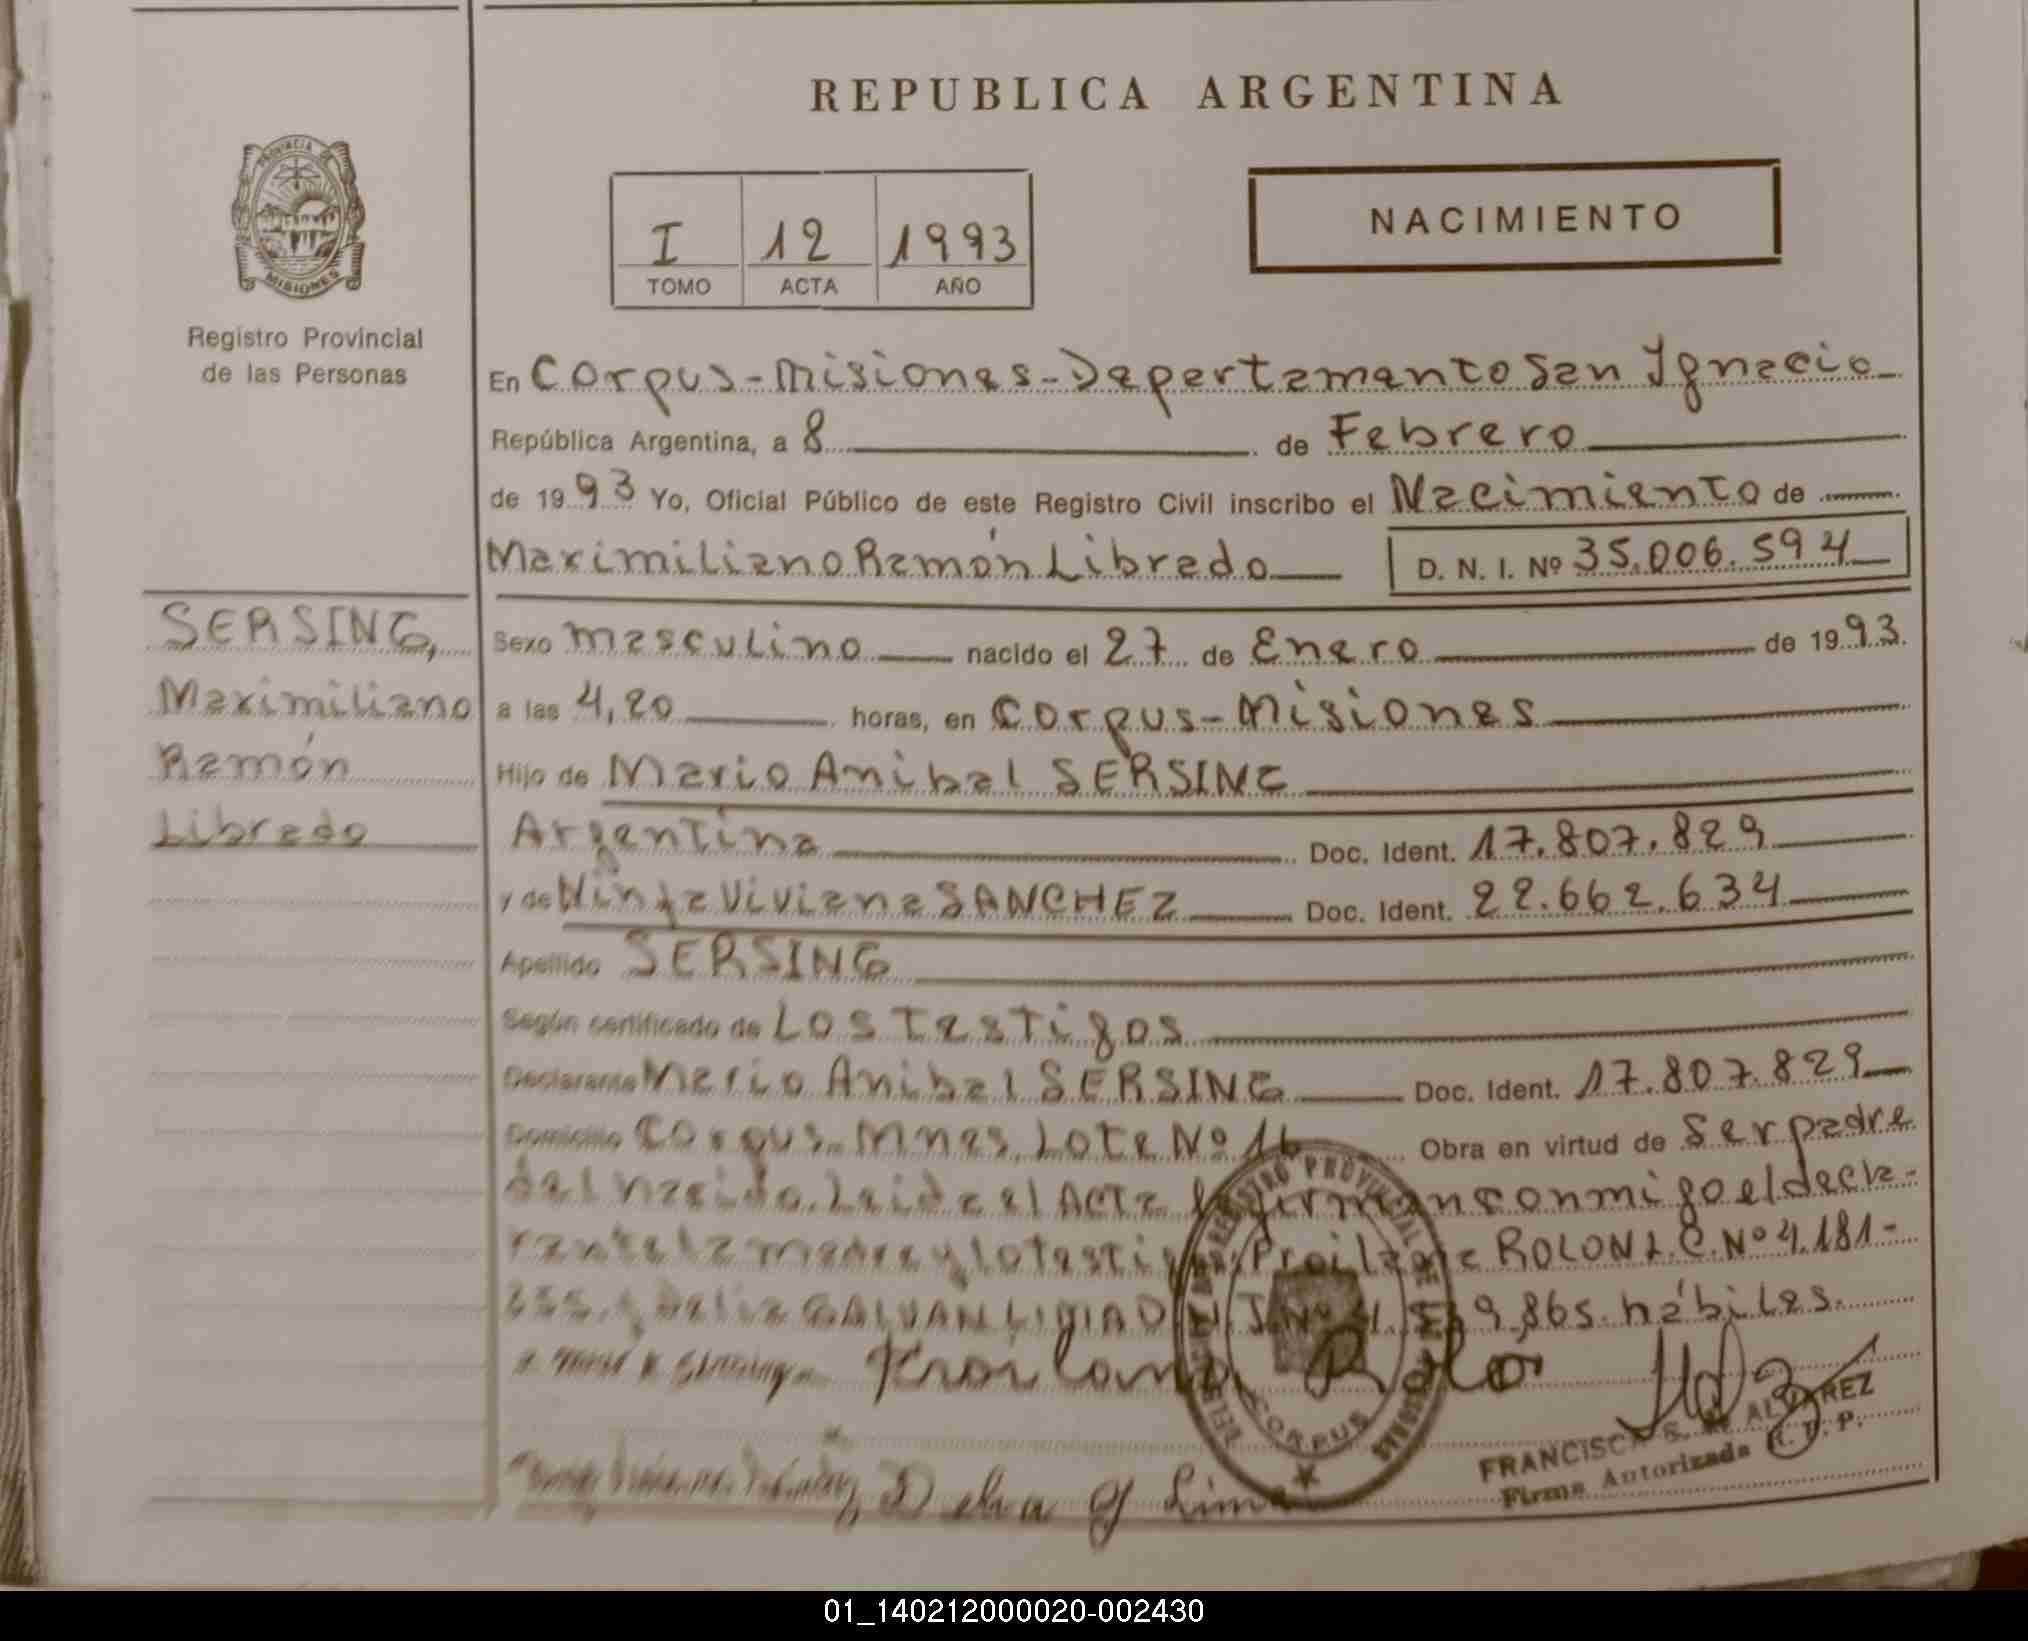 REPUBLICA ARGENTINA
PROVINCIA DE
MISIONES
Registro Provincial
de las Personas
I 12 1993
TOMO ACTA AÑO
NACIMIENTO
En Corpus-Misiones-Departamento San Ignacio
República Argentina, a 8 de Febrero
de 1993 Yo, Oficial Público de este Registro Civil inscribo el Nacimiento de
Maximiliano Ramón Librado D. N. I. Nº 35.006.594
SERSING,
Maximiliano
Ramón
Librado
Sexo masculino nacido el 27 de Enero de 1993.
a las 4,20 horas, en Corpus-Misiones
Hijo de Mario Anibal SERSING
Argentina Doc. Ident. 17.807.829
y de Viviana SANCHEZ Doc. Ident. 22.662.634
Apellido SERSING
Según certificado de Los Testigos
Declarante Mario Anibal SERSING Doc. Ident. 17.807.829
Domicilio Corpus-Mnes. Lote Nº 16 Obra en virtud de Ser padre
del nacido. Leida el Acta firman conmigo el decla-
rante la madre y lo testigos ROLON L.C. Nº 4.181-
GALVAN 865. hábiles.
REGISTRO PROVINCIAL DE LAS PERSONAS
CORPUS
FRANCISCA S. ALVAREZ
Firma Autorizada R. P. P.
01_140212000020-002430